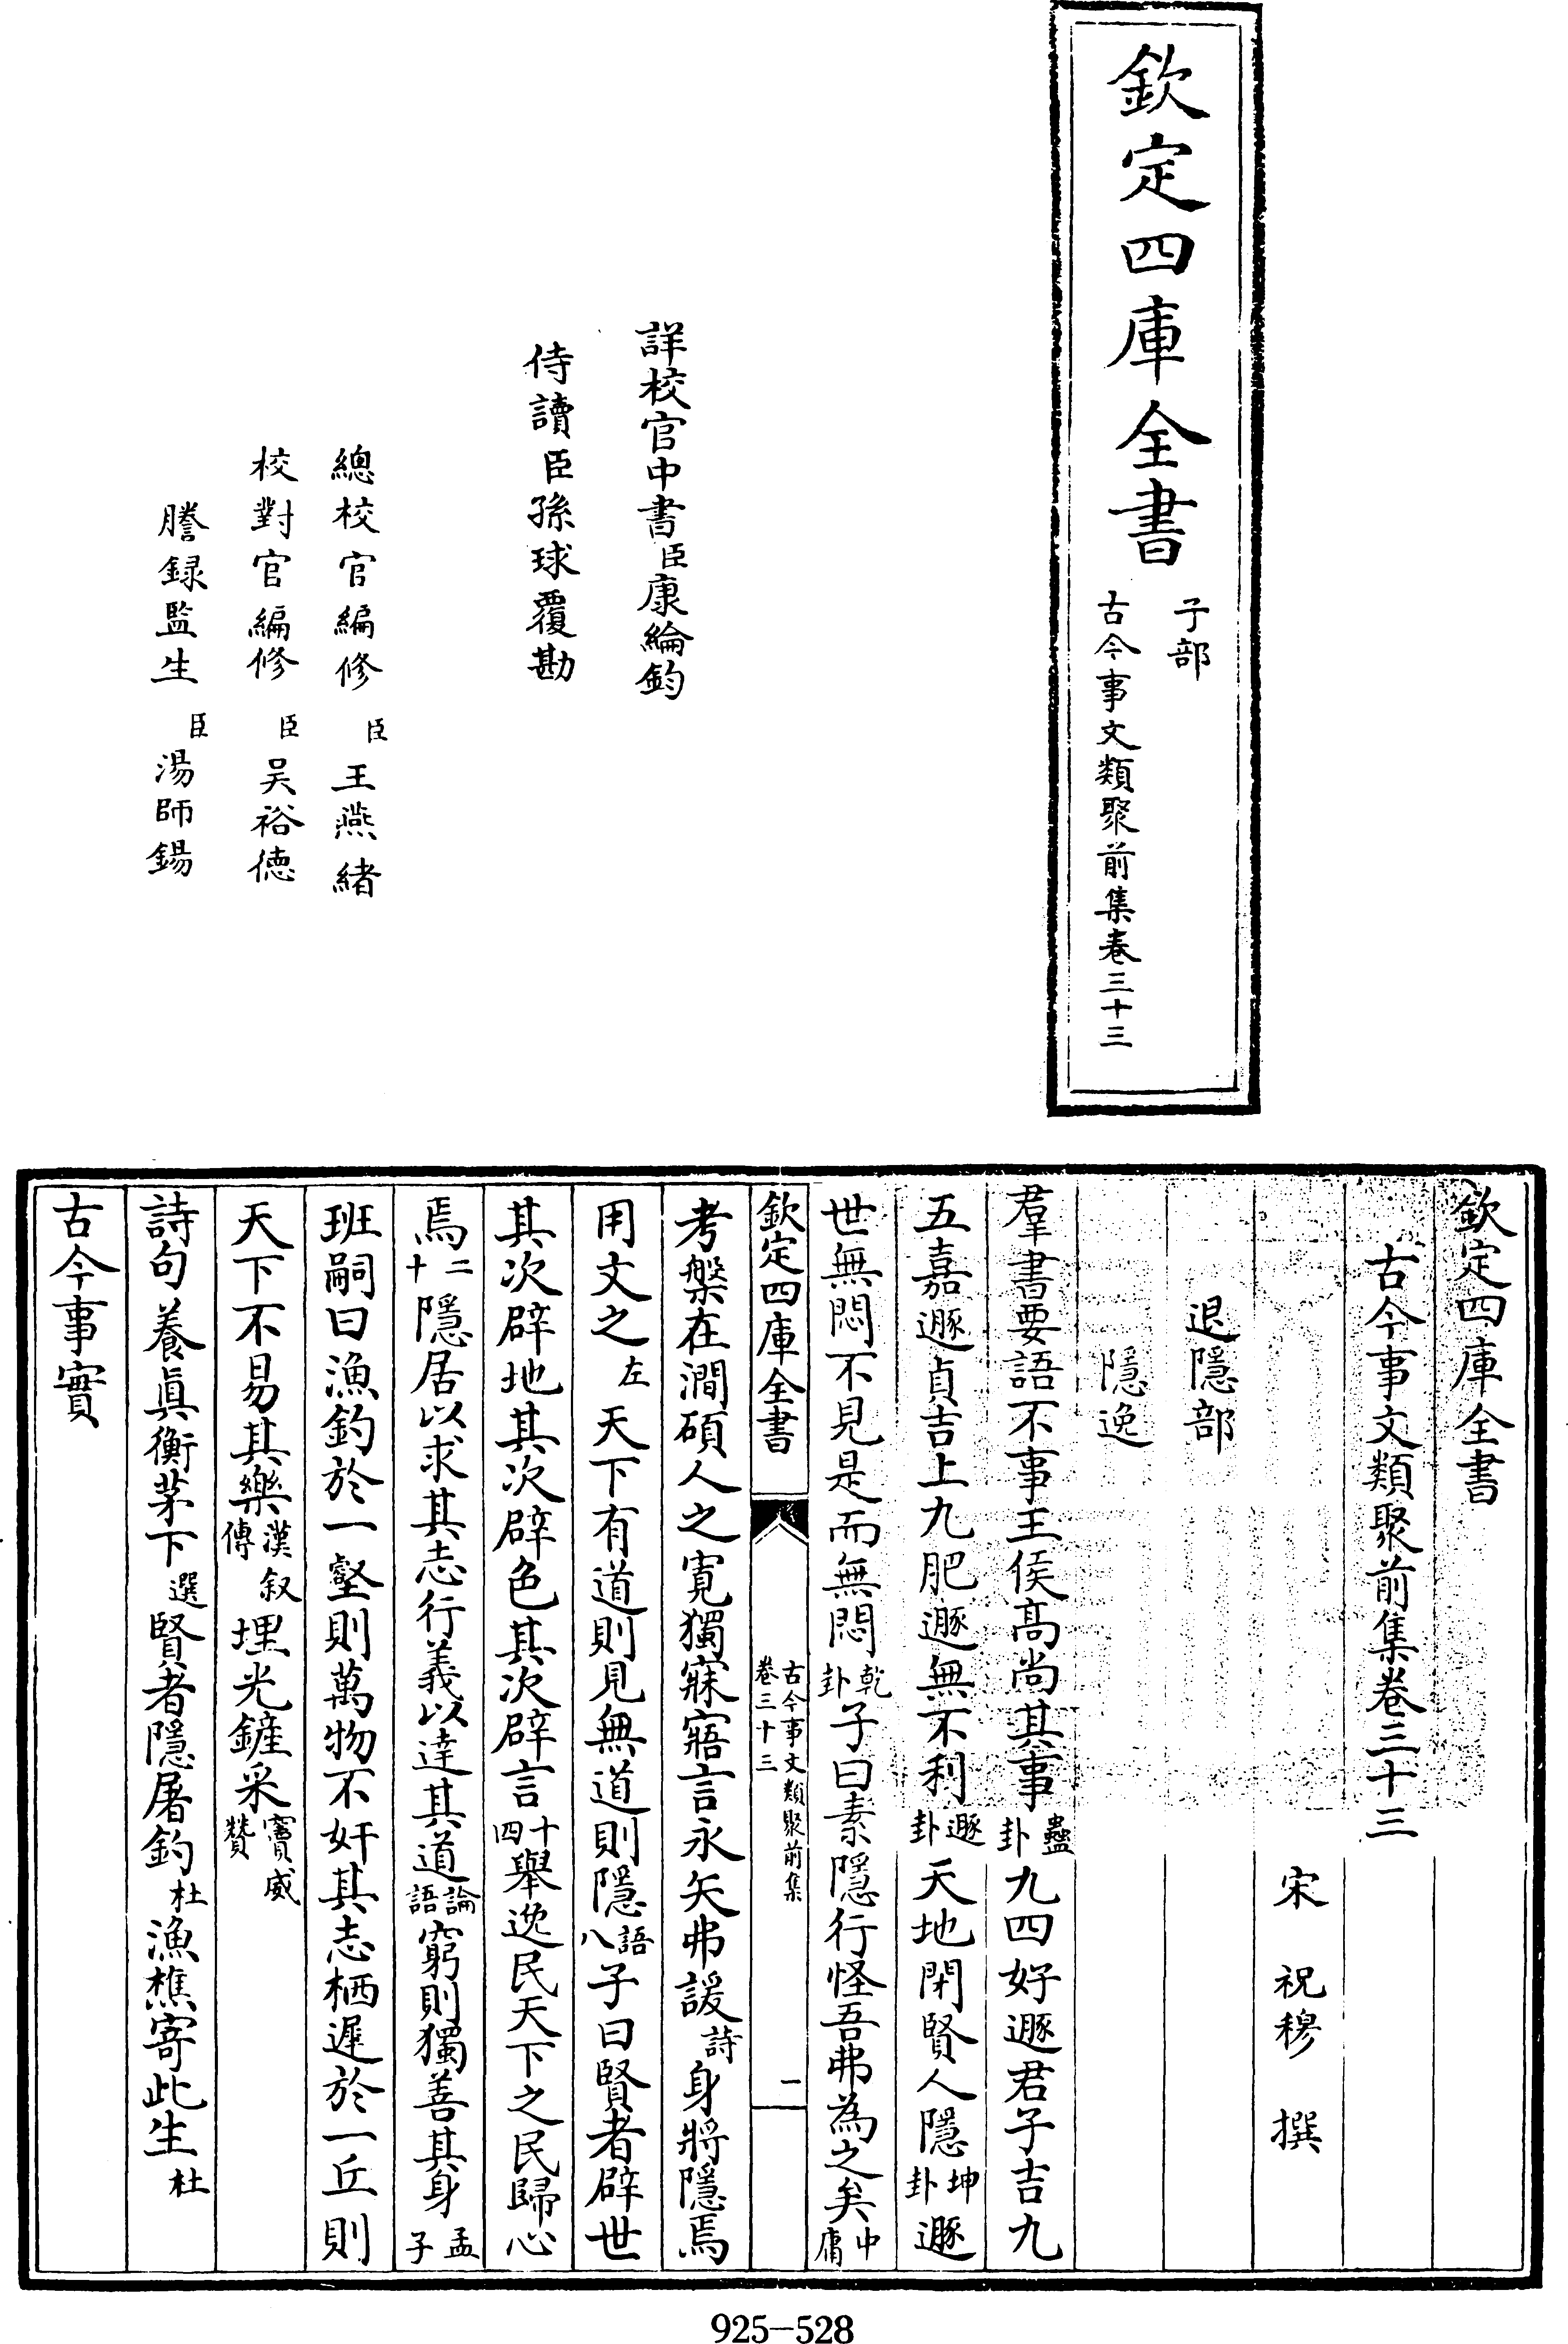 欽定四庫全書
子部
古今事文類聚前集卷三十三
詳校官中書臣康綸鈞
侍讀臣孫球覆勘
總校官編修臣王燕緒
校對官編修臣吴裕德
謄録監生臣湯師錫
欽定四庫全書
古今事文類聚前集卷三十三
宋 祝穆 撰
退隱部
隱逸
羣書要語不事王侯髙尚其事蠱卦九四好遯君子吉九
五嘉遯貞吉上九肥遯無不利遯卦天地閉賢人隱坤卦遯
世無悶不見是而無悶乾卦子曰素隱行怪吾弗為之矣中庸
欽定四庫全書
古今事文類聚前集
卷三十三
一
考槃在澗碩人之寛獨寐寤言永矢弗諼詩身將隱焉
用文之左天下有道則見無道則隱語八子曰賢者辟世
其次辟地其次辟色其次辟言十四舉逸民天下之民歸心
焉二十隱居以求其志行義以達其道論語窮則獨善其身孟子
班嗣曰漁釣於一壑則萬物不奸其志栖遲於一丘則
天下不易其樂漢叙傳埋光鏟采竇威贊
詩句養真衡茅下選賢者隱屠釣杜漁樵寄此生杜
古今事實
925-528